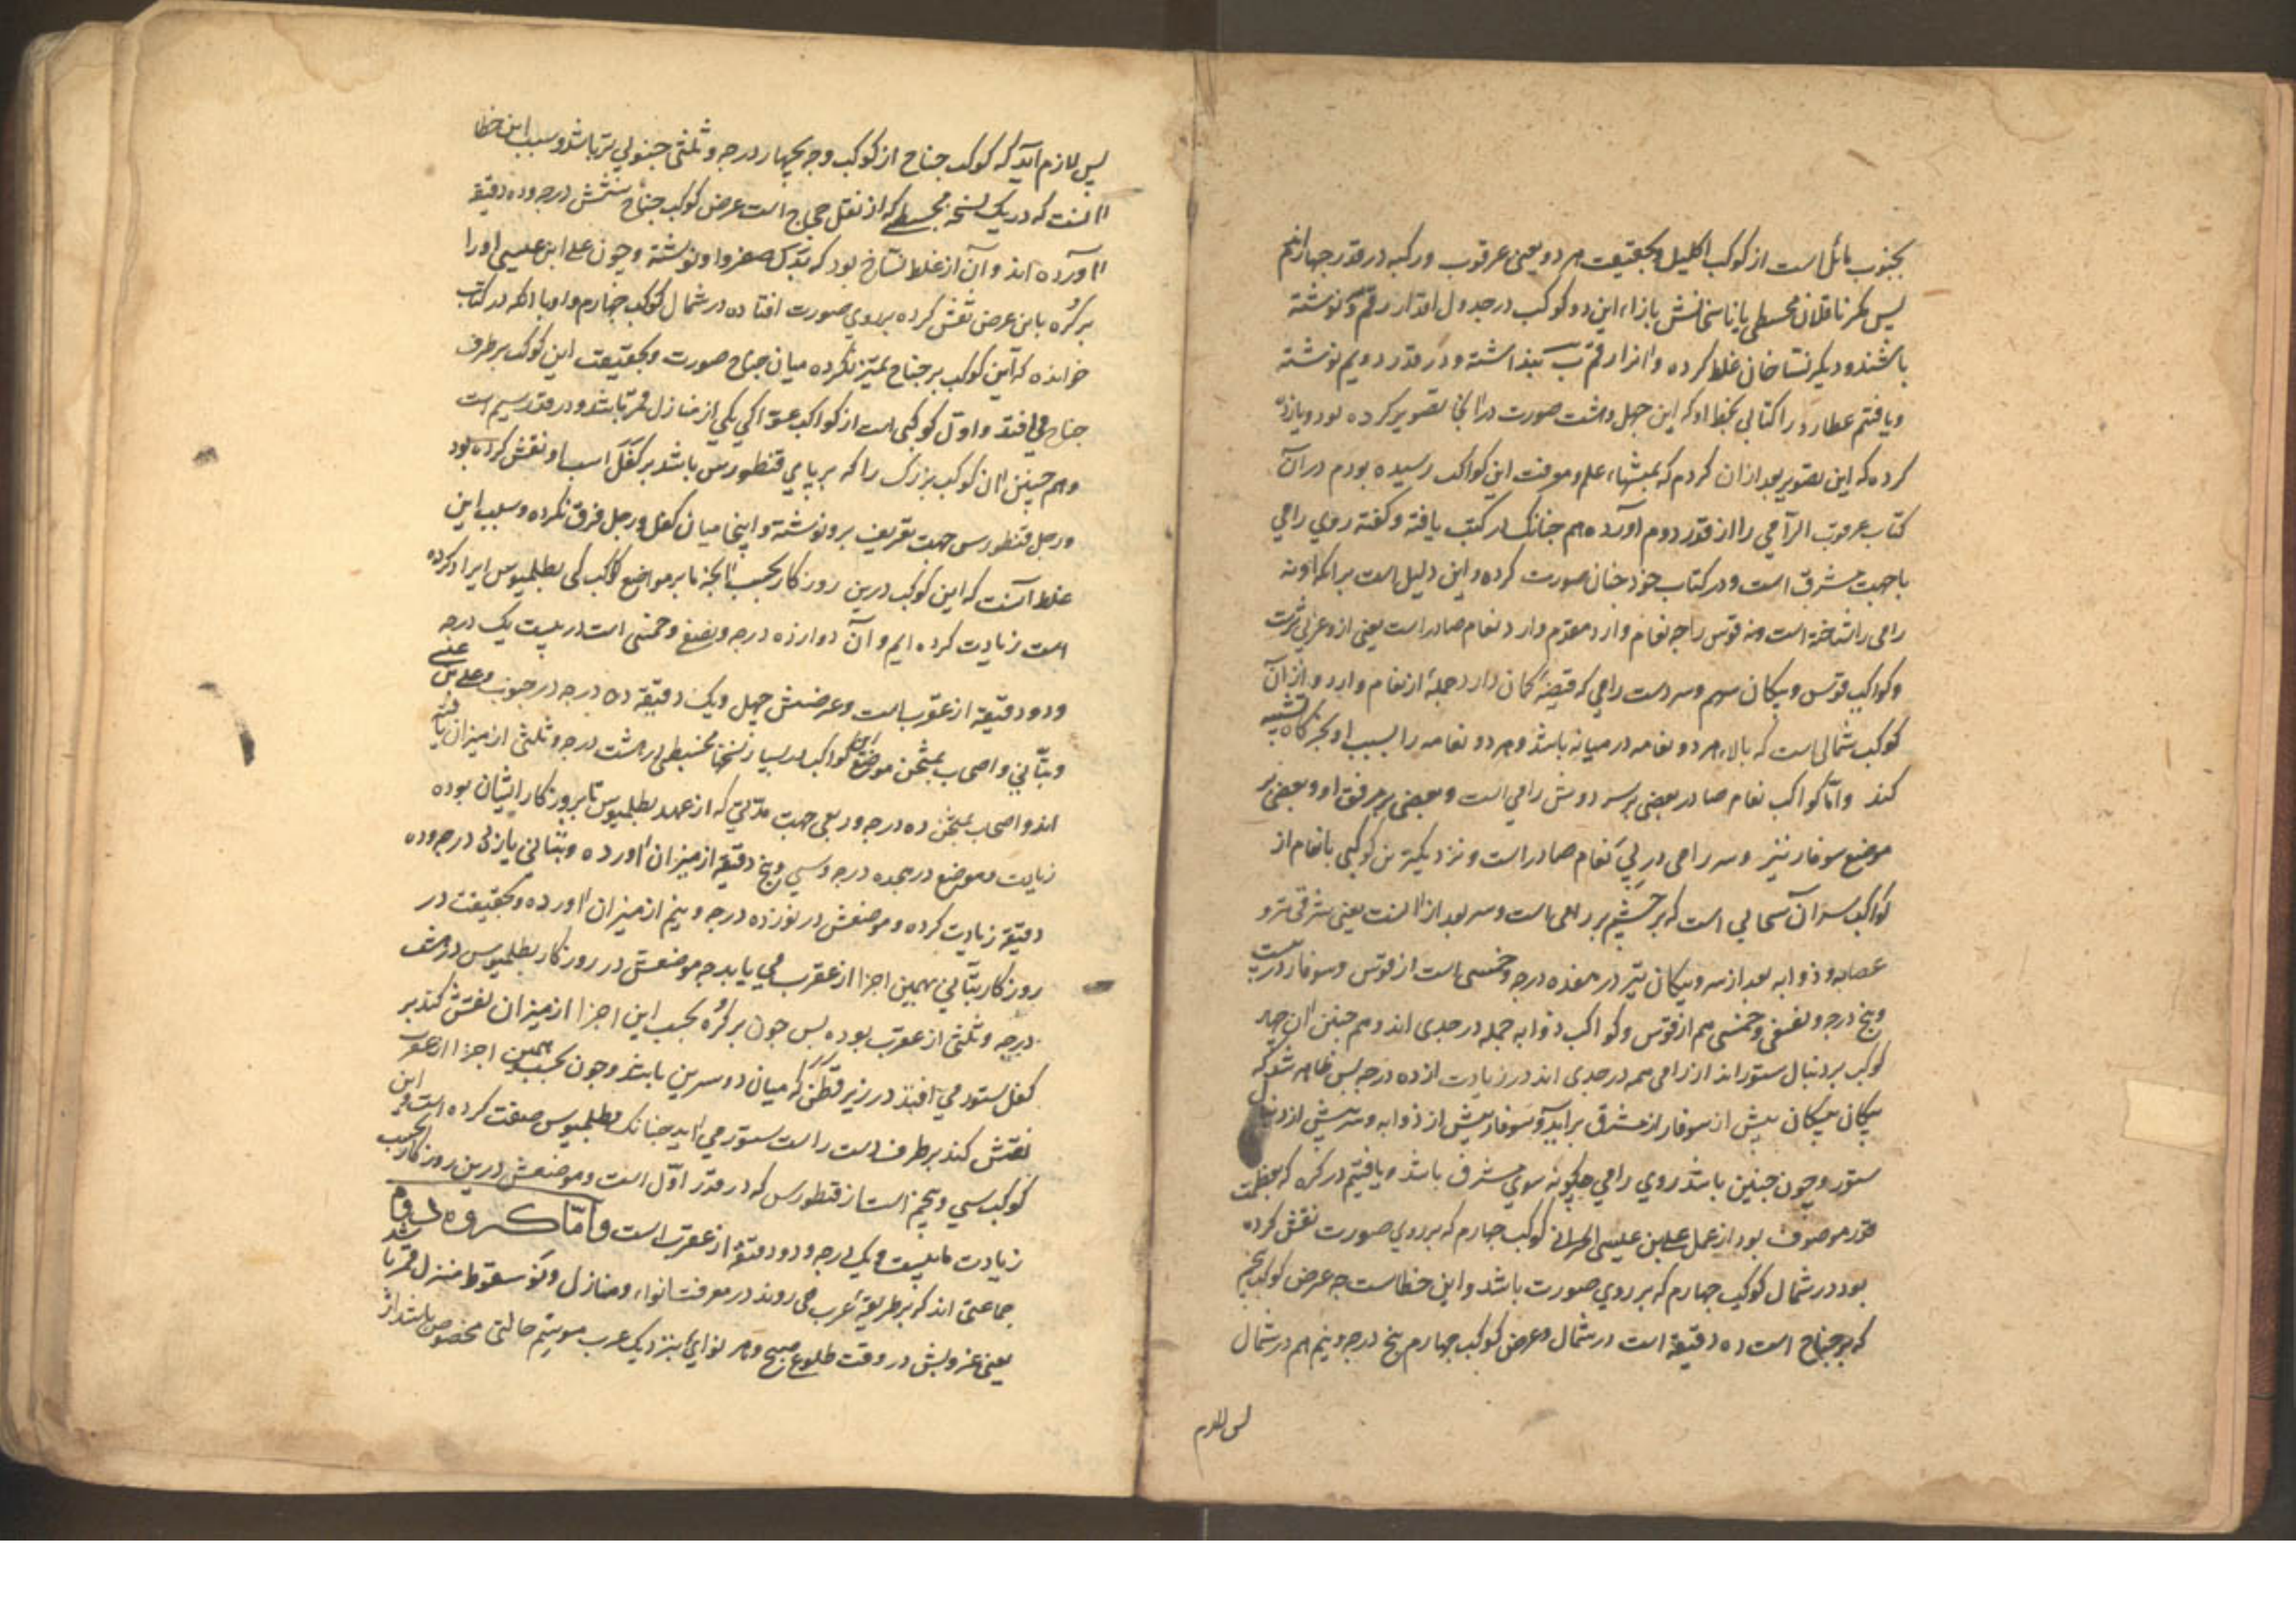 بجنوب مائل است از کوکب اکلیل و بحقیقت هر دو یعنی عرقوب و رکبه در قدر چهار اند
پس مگر ناقلان مجسطی یا ناسخانش بازاء این دو کوکب در جدول اقدار رقم د نوشته
باشند و دیگر نساخان غلط کرده و انرا رقم ب پنداشته و در قدر دویم نوشته
و یافتم عطارد را کتابی بخط او که این چهل و هشت صورت در انجا تصویر کرده بود و یاد
کرده که این تصویر بعد از ان کردم که بمنتهاء علم و معرفت این کواکب رسیده بودم در آن
کتاب عرقوب الرامی را از قدر دوم آورده هم چنانک در کتب یافته و گفته روی رامی
با جهت مشرق است و در کتاب خود چنان صورت کرده و این دلیل است بر انکه او نه
رامی را شناخته است و نه قوس را چه نعام وارد مقدم وارد نعام صادر است یعنی ازو غربی ترست
و کواکب قوس و پیکان سهم و سر دست رامی که قبضه کمان دارد جمله از نعام وارد و از آن
کوکب شمالی است که بالاء هر دو نعامه در میانه باشد و هر دو نعامه را بسبب او بچراگاه تشبیه
کنند و اما کواکب نعام صادر بعضی بر سر دوش رامی است و بعضی بر مرفق او و بعضی بر
موضع سوفار تیر و سر رامی در پی نعام صادر است و نزدیکترین کوکبی بانعام از
کواکب سر آن سحابی است که بر چشم رامی است و سر بعد از انست یعنی شرقی تر و
عصابه و ذوابه بعد از سر و پیکان تیر در هفده درجه و خمسی است از قوس و سوفار در بیست
و پنج درجه و نصفی و خمسی هم از قوس و کواکب ذوابه جمله در جدی اند و هم چنین ان چهار
کوکب بر دنبال ستور اند از رامی هم در جدی اند در زیادت از ده درجه پس ظاهر شد که
پیکانی پیکانی پیش از سوفار از مشرق بر آید و سوفار پیش از ذوابه و سر پیش از دنبال
ستور و چون چنین باشد روی رامی چگونه سوی مشرق باشد و یافتیم در کره که بعظمت
قدر موصوف بود از عمل علی بن عیسی الحرانی کوکب چهارم که بر روی صورت نقش کرده
بود در شمال کوکب چهارم که بر روی صورت باشد و این خطاست چه عرض کوکب پنجم
که بر جناح است ده دقیقه است در شمال و عرض کوکب چهارم پنج درجه و نیم هم در شمال
پس لازم
پس لازم آید که کوکب جناح از کوکب وجه بچهار درجه و ثلثی جنوبی تر باشد و سبب این خطا
انست که در یک نسخه مجسطی که از نقل حجاج است عرض کوکب جناح شش درجه و ده دقیقه
اورده اند و آن از غلط نساخ بود که بدل صفر واو نوشته و چون علی ابن عیسی او را
بر کره باین عرض نقش کرده بر روی صورت افتاده در شمال کوکب چهارم و او با انکه در کتاب
خوانده که این کوکب بر جناح تمیز نکرده میان جناح صورت و بحقیقت این کوکب بر طرف
جناح می افتد و اول کوکبی است از کواکب عوا کی یکی از منازل قمر باشد و در قدر سیم است
و هم چنین ان کوکب بزرک را که بر پای قنطورس باشد بر کفل اسب او نقش کرده بود
و رجل قنطورس جهت تعریف برو نوشته و اینجا میان کفل و رجل فرق نکرده و سبب این
غلط آنست که این کوکب درین روزکار بحسب انچه ما بر مواضع کواکب کی بطلمیوس ایراد کرده
است زیادت کرده ایم و آن دوازده درجه و نصف و خمسی است در بیست یک درجه
و دو دقیقه از عقرب است و عرضش چهل و یک دقیقه ده درجه در جنوب و علی بن عیسی
و بتانی و اصحاب ممتحن موضع این کواکب در بسیار نسخها مجسطی در هشت درجه و ثلثی از میزان یافته
اند و اصحاب ممتحن ده درجه و ربعی جهت مدتی که از عهد بطلمیوس تا بروزکار ایشان بوده
زیادت و موضع در هجده درجه و سی و پنج دقیقه از میزان اورده و بتانی یازده درجه و ده
دقیقه زیادت کرده و موضعش در نوزده درجه و نیم از میزان اورده و بحقیقت در
روزکار بتانی بهمین اجزا از عقرب می باید چه موضعش در روزکار بطلمیوس در هشت
درجه و ثلثی از عقرب بوده پس چون بر کره بحسب این اجزا از میزان نقش کنند بر
کفل ستور می افتد در زیر قطن که میان دو سرین باشد و چون بحسب همین اجزا از عقرب
نقش کنند بر طرف دست راست ستور می اید چنانک بطلمیوس صفت کرده است و این
کوکب سی و پنجم است از قنطورس که در قدر اول است و موضعش درین روزکار بحسب
زیادت ما بیست و یک درجه و دو دقیقه از عقرب است و اما کروه دوم
جماعتی اند که بر طریقه عرب می روند در معرفت انواء و منازل و نوء سقوط منزل قمر باشد
یعنی غروبش در وقت طلوع صبح و هر نوای بنزدیک عرب موسم حالتی مخصوص باشد از